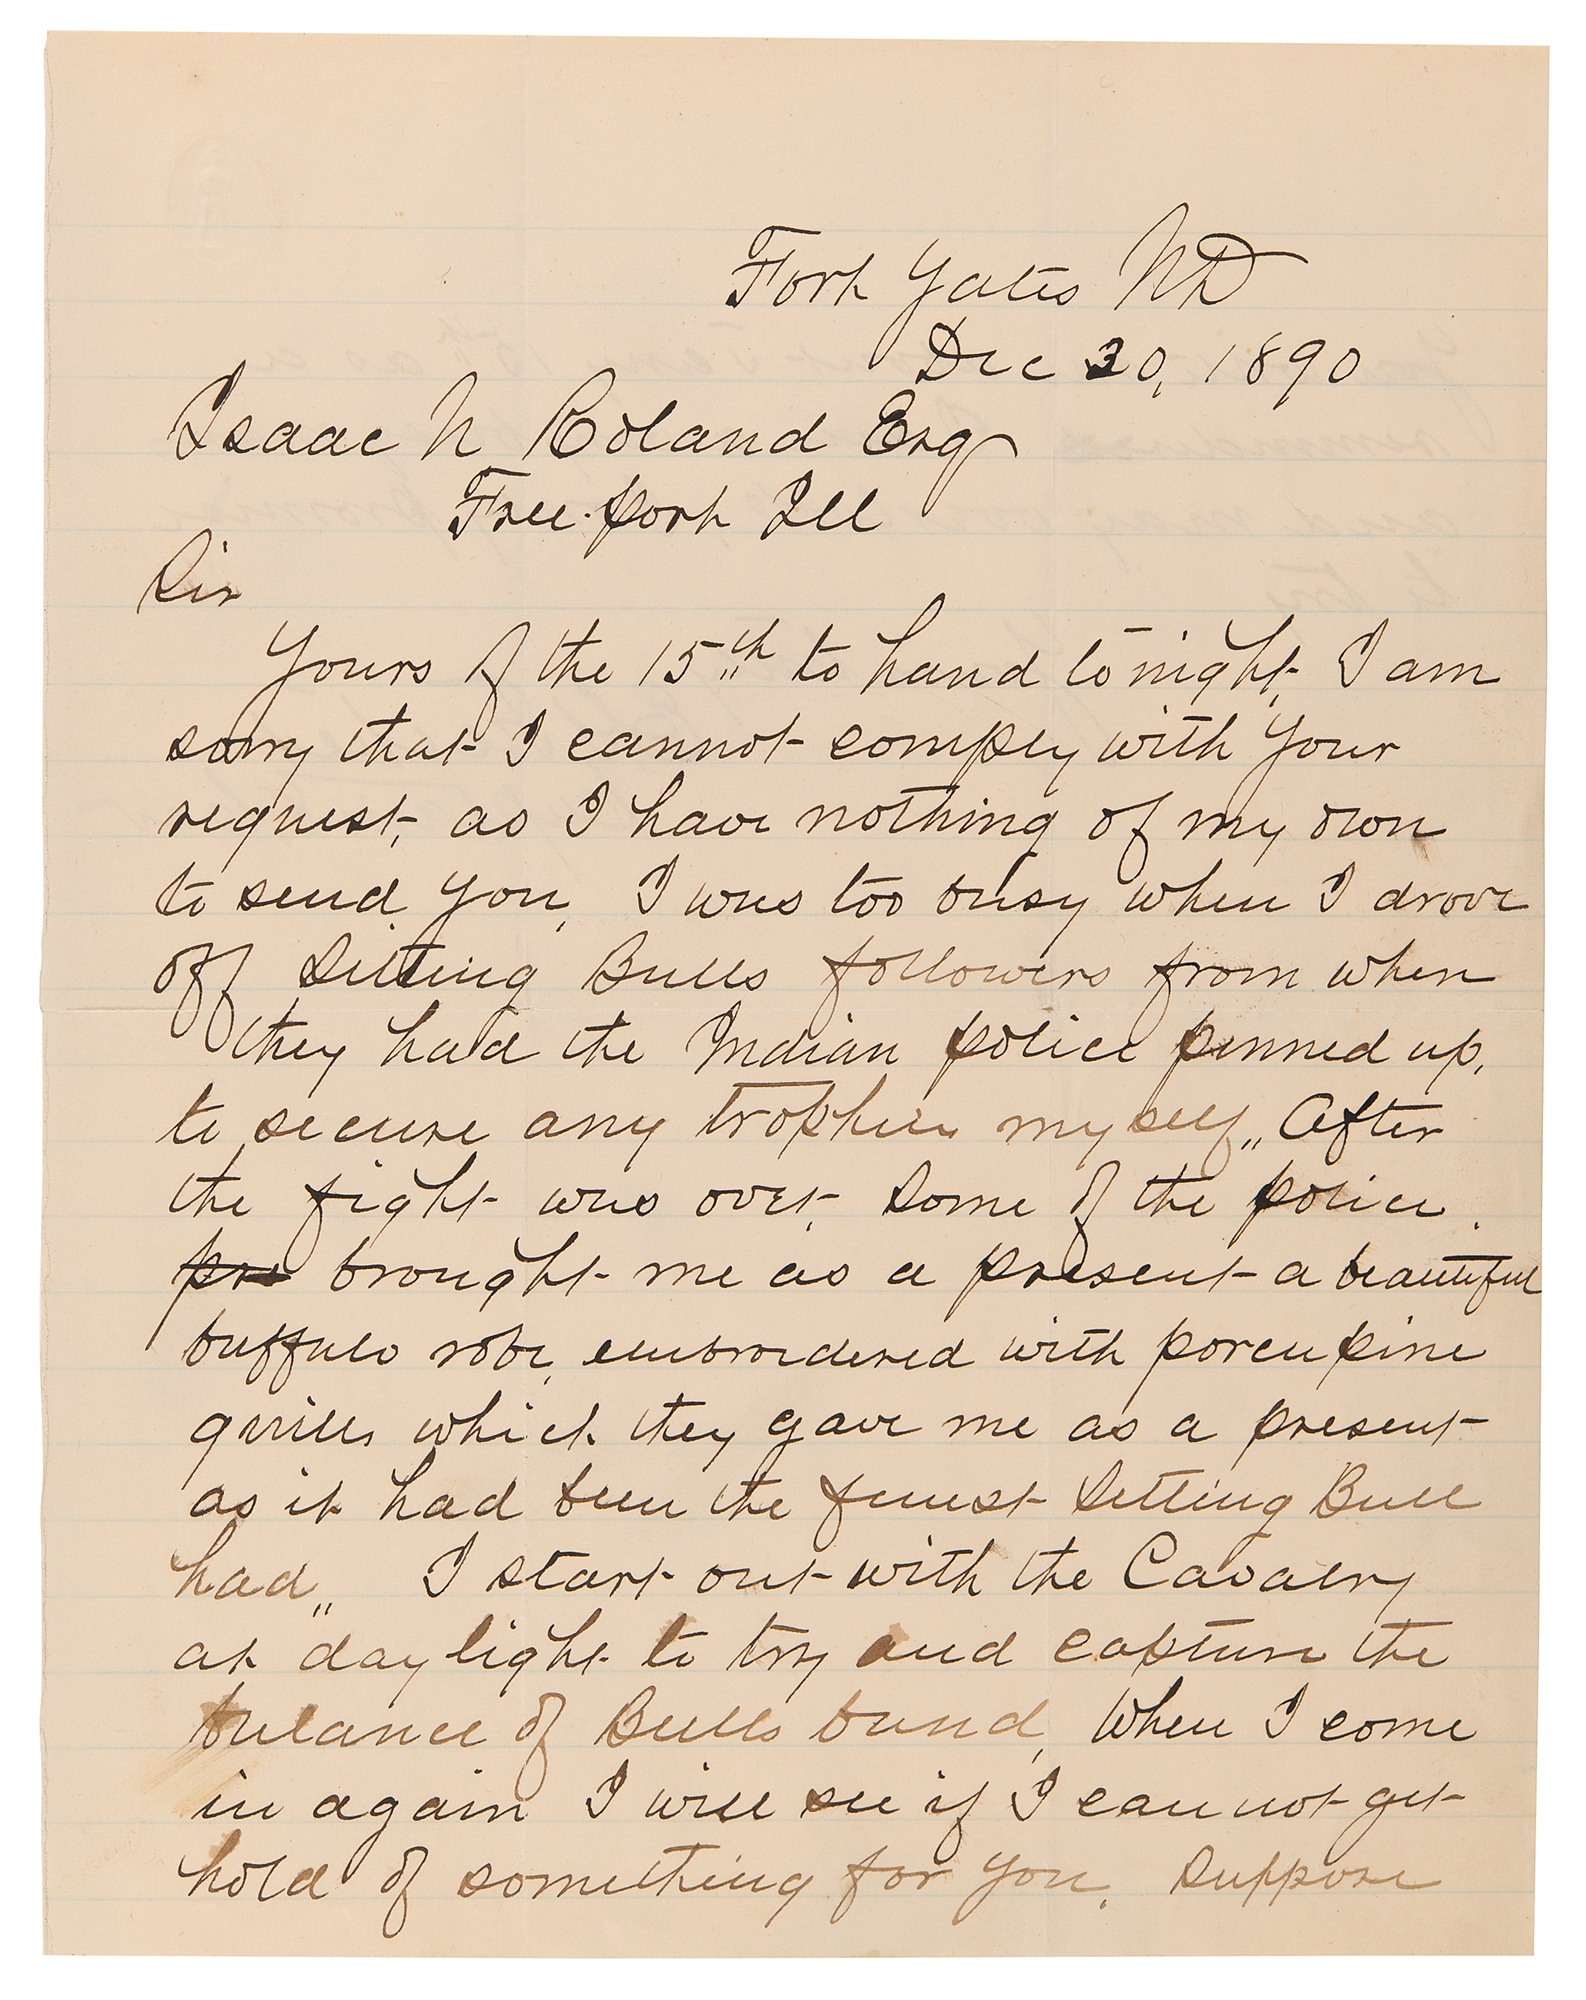 Fort Yates ND
Dec 30, 1890
Isaac N Roland Esq
Free-port Ill
Sir
Yours of the 15th to hand to night, I am
sorry that I cannot comply with your
request, as I have nothing of my own
to send you, I was too busy when I drove
off Sitting Bulls followers from when
they had the Indian police penned up,
to secure any trophies myself,, After
the fight was over, some of the police
pre brought me as a present a beautiful
buffalo robe, embroidered with porcupine
quills which they gave me as a present
as it had been the finest Sitting Bull
had,, I start out with the Cavalry
at daylight to try and capture the
balance of Bulls band, When I come
in again I will see if I can not get
hold of something for you. Suppose